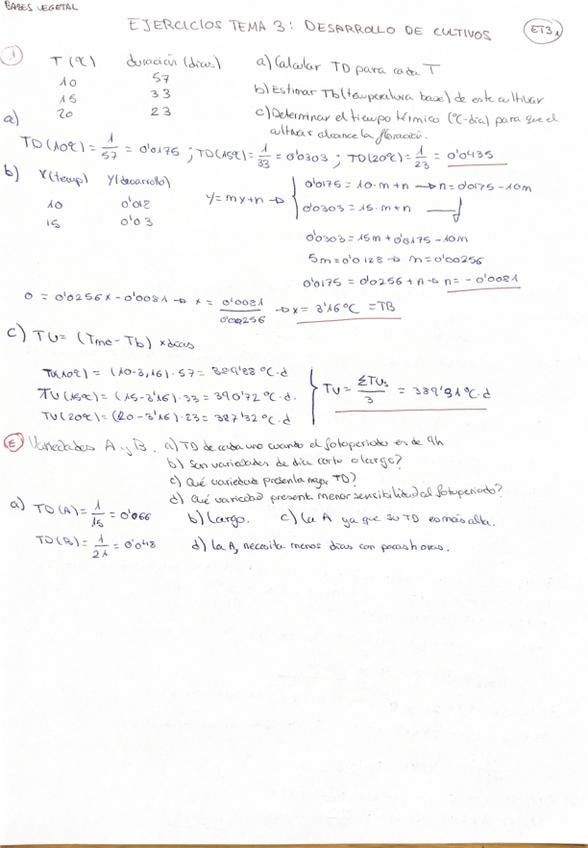 BASES VEGETAL
EJERCICIOS TEMA 3: DESARROLLO DE CULTIVOS ET3₁
1 T (ºC) duración (días) a) Calcular TD para cada T
10 57
15 33 b) Estimar Tb (temperatura base) de este cultivar
20 23 c) Determinar el tiempo térmico (ºC-día) para que el
cultivar alcance la floración.
a)
TD (10ºC) = 1/57 = 0'0175 ; TD (15ºC) = 1/33 = 0'0303 ; TD (20ºC) = 1/23 = 0'0435
b) X (temp) Y (desarrollo) y = mx + n → 0'0175 = 10·m + n → n = 0'0175 - 10m
10 0'018 0'0303 = 15·m + n
15 0'03
0'0303 = 15m + 0'0175 - 10m
5m = 0'0128 → m = 0'00256
0'0175 = 0'0256 + n → n = - 0'0081
0 = 0'0256x - 0'0081 → x = 0'0081/0'00256 → x = 3'16ºC = TB
c) TU = (Tmc - Tb) × días
TU (10ºC) = (10-3,16)·57 = 389'88 ºC·d
TU (15ºC) = (15-3'16)·33 = 390'72 ºC·d. TU = ΣTU₃/3 = 389'31 ºC·d
TU (20ºC) = (20-3'16)·23 = 387'32 ºC·d
2 Variedades A y B. a) TD de cada uno cuando el fotoperiodo es de 9h
b) Son variedades de día corto o largo?
c) Qué variedad presenta mayor TD?
d) Qué variedad presenta menor sensibilidad al fotoperiodo?
a) TD (A) = 1/15 = 0'066 b) Largo. c) La A ya que su TD es más alta.
TD (B) = 1/21 = 0'048 d) La A, necesita menos días con pocas horas.